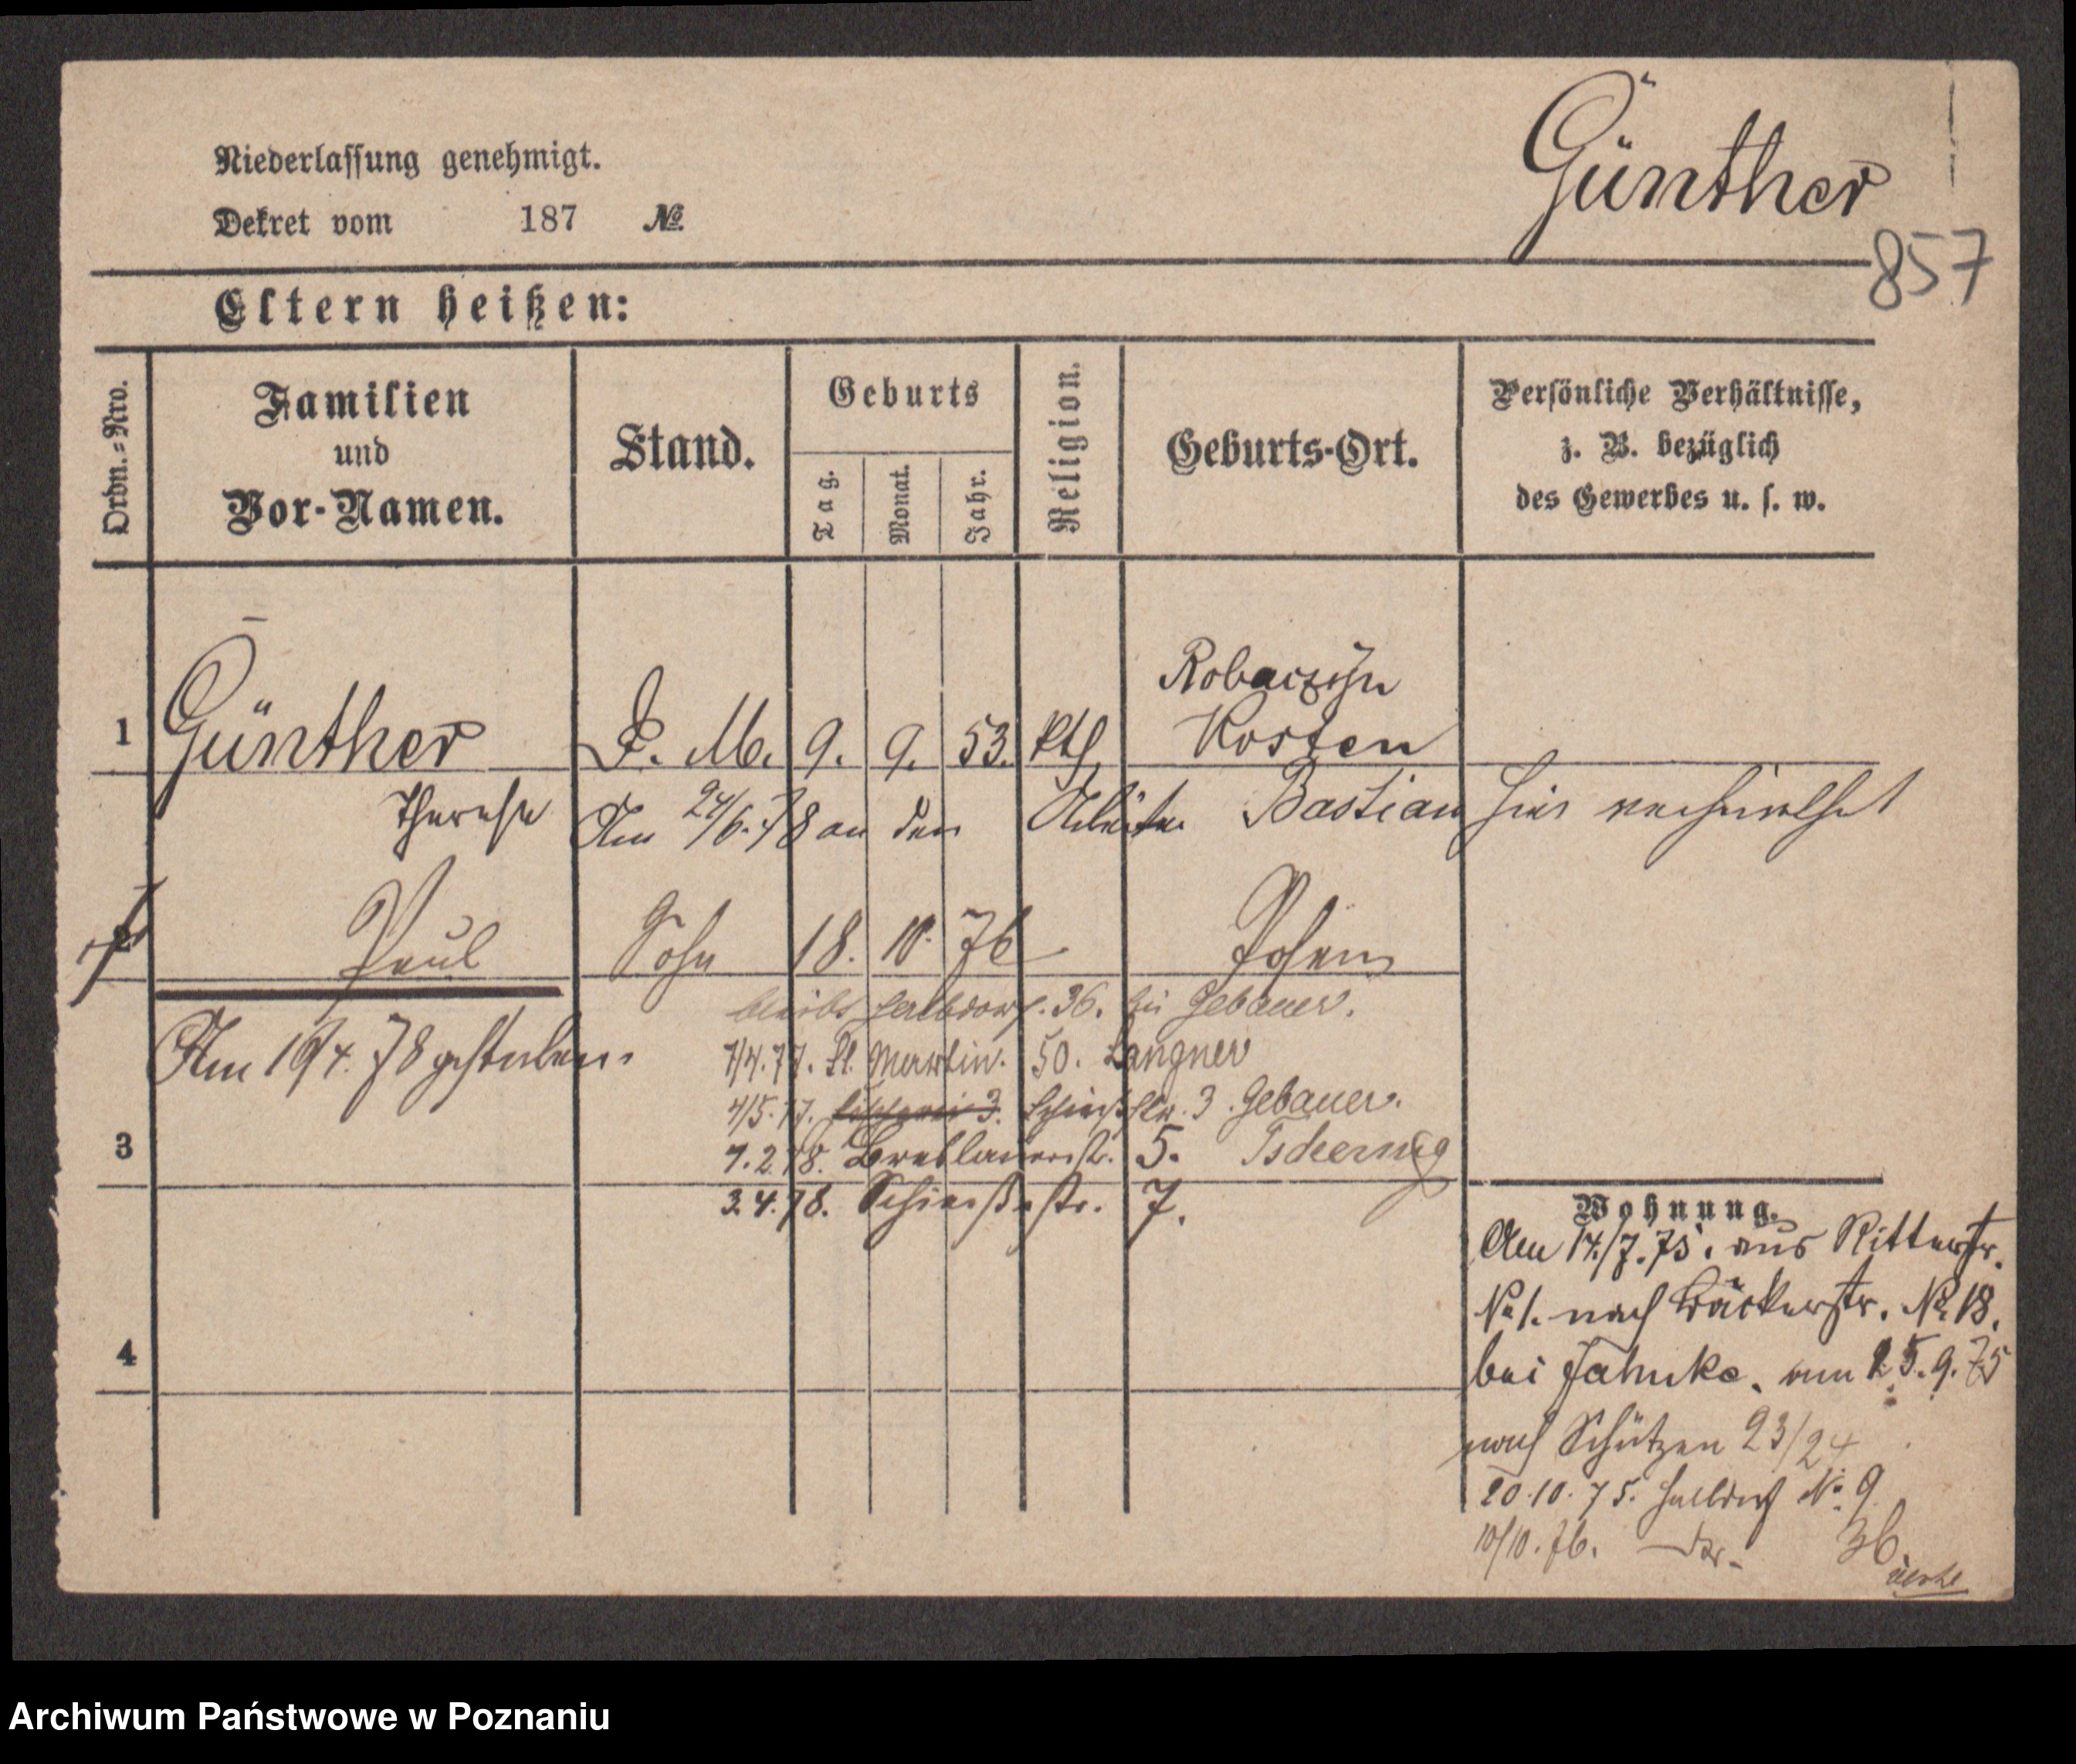 Günther
Niederlassung genehmigt.
Dekret vom 187 №
857
Eltern heißen:
Ordn.-Nro.
Familien
und
Vor-Namen.
Stand.
Geburts
Tag.
Monat.
Jahr.
Religion.
Geburts-Ort.
Persönliche Verhältnisse,
z. B. bezüglich
des Gewerbes u. s. w.
Robaczyn
1 Günther D. M. 9. 9. 53. kth Kosten
Therese Am 24/6.78 an den Arbeiter Bastian hier verheirathet
Paul Sohn 18. 10. 76 Posen
Halbdorf. 36. bei Gebauer.
Am 19/4. 78 gestorben.
7/4.77. St. Martin. 50. Langner
4/5.77. Schießstr. 3. Gebauer.
3
7.2.78. Breslauerstr. 5.
3.4.78. Schießstr. 7.
Wohnung.
Am 14/7.75. aus Ritterstr.
No 1. nach Bäckerstr. No 18.
4
bei Jahnke. am 25.9.75
nach Schützen 23/24
20.10.75. Halbdorf No 9
10/10.76. 36.
Archiwum Państwowe w Poznaniu